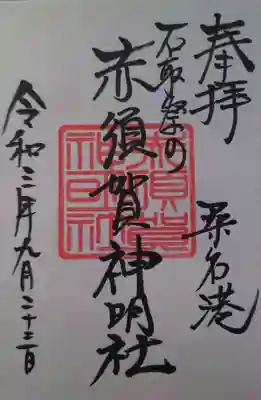 奉拝
桑名港
石取祭の
赤須賀神明社
令和三年九月二十三日
赤須賀神明社